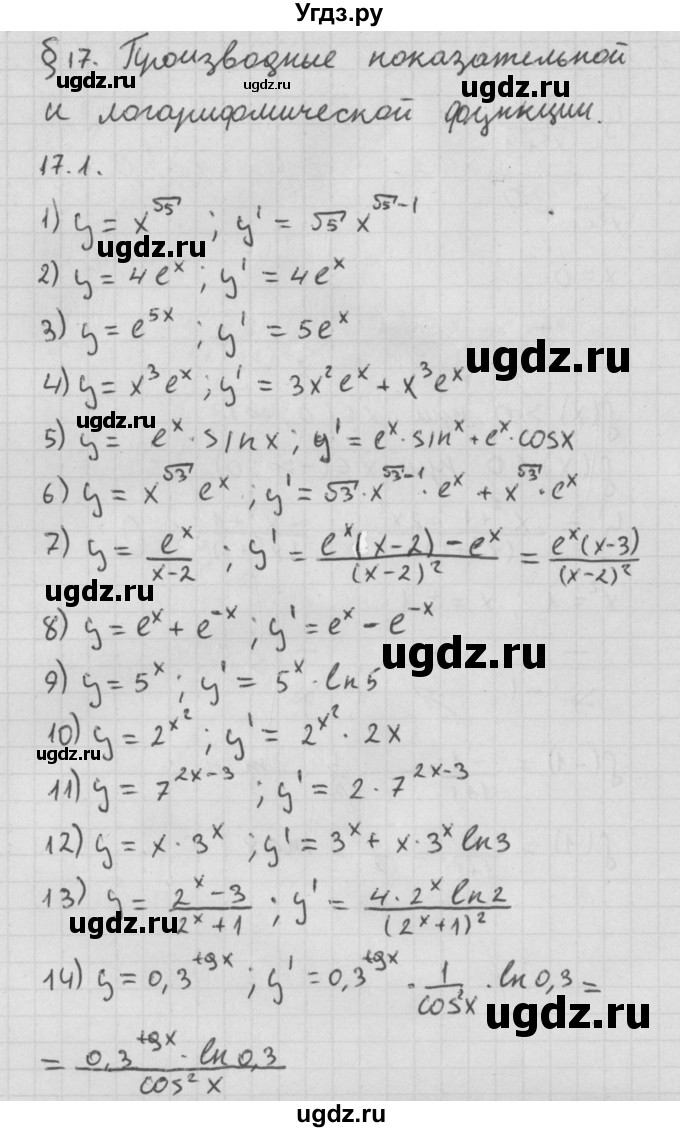 Угдз.ру
§17. Производные показательной
ugdz.ru
и логарифмической функции.
17.1.
1) y = x^√5 ; y' = √5 x^(√5-1)
ugdz.ru
2) y = 4e^x ; y' = 4e^x
3) y = e^(5x) ; y' = 5e^x
ugdz.ru
4) y = x^3 e^x ; y' = 3x^2 e^x + x^3 e^x
5) y = e^x · sin x ; y' = e^x · sin^x + e^x · cos x
6) y = x^√3 e^x ; y' = √3 · x^(√3-1) · e^x + x^√3 · e^x
7) y = e^x/(x-2) ; y' = (e^x(x-2) - e^x)/(x-2)^2 = e^x(x-3)/(x-2)^2
ugdz.ru
8) y = e^x + e^(-x) ; y' = e^x - e^(-x)
ugdz.ru
9) y = 5^x ; y' = 5^x · ln 5
10) y = 2^(x^2) ; y' = 2^(x^2) · 2x
ugdz.ru
11) y = 7^(2x-3) ; y' = 2 · 7^(2x-3)
ugdz.ru
12) y = x · 3^x ; y' = 3^x + x · 3^x ln 3
13) y = (2^x - 3)/(2^x + 1) ; y' = (4 · 2^x ln 2)/(2^x + 1)^2
ugdz.ru
14) y = 0,3^(tg x) ; y' = 0,3^(tg x) · 1/cos^2 x · ln 0,3 =
ugdz.ru
= (0,3^(tg x) · ln 0,3)/cos^2 x
ugdz.ru